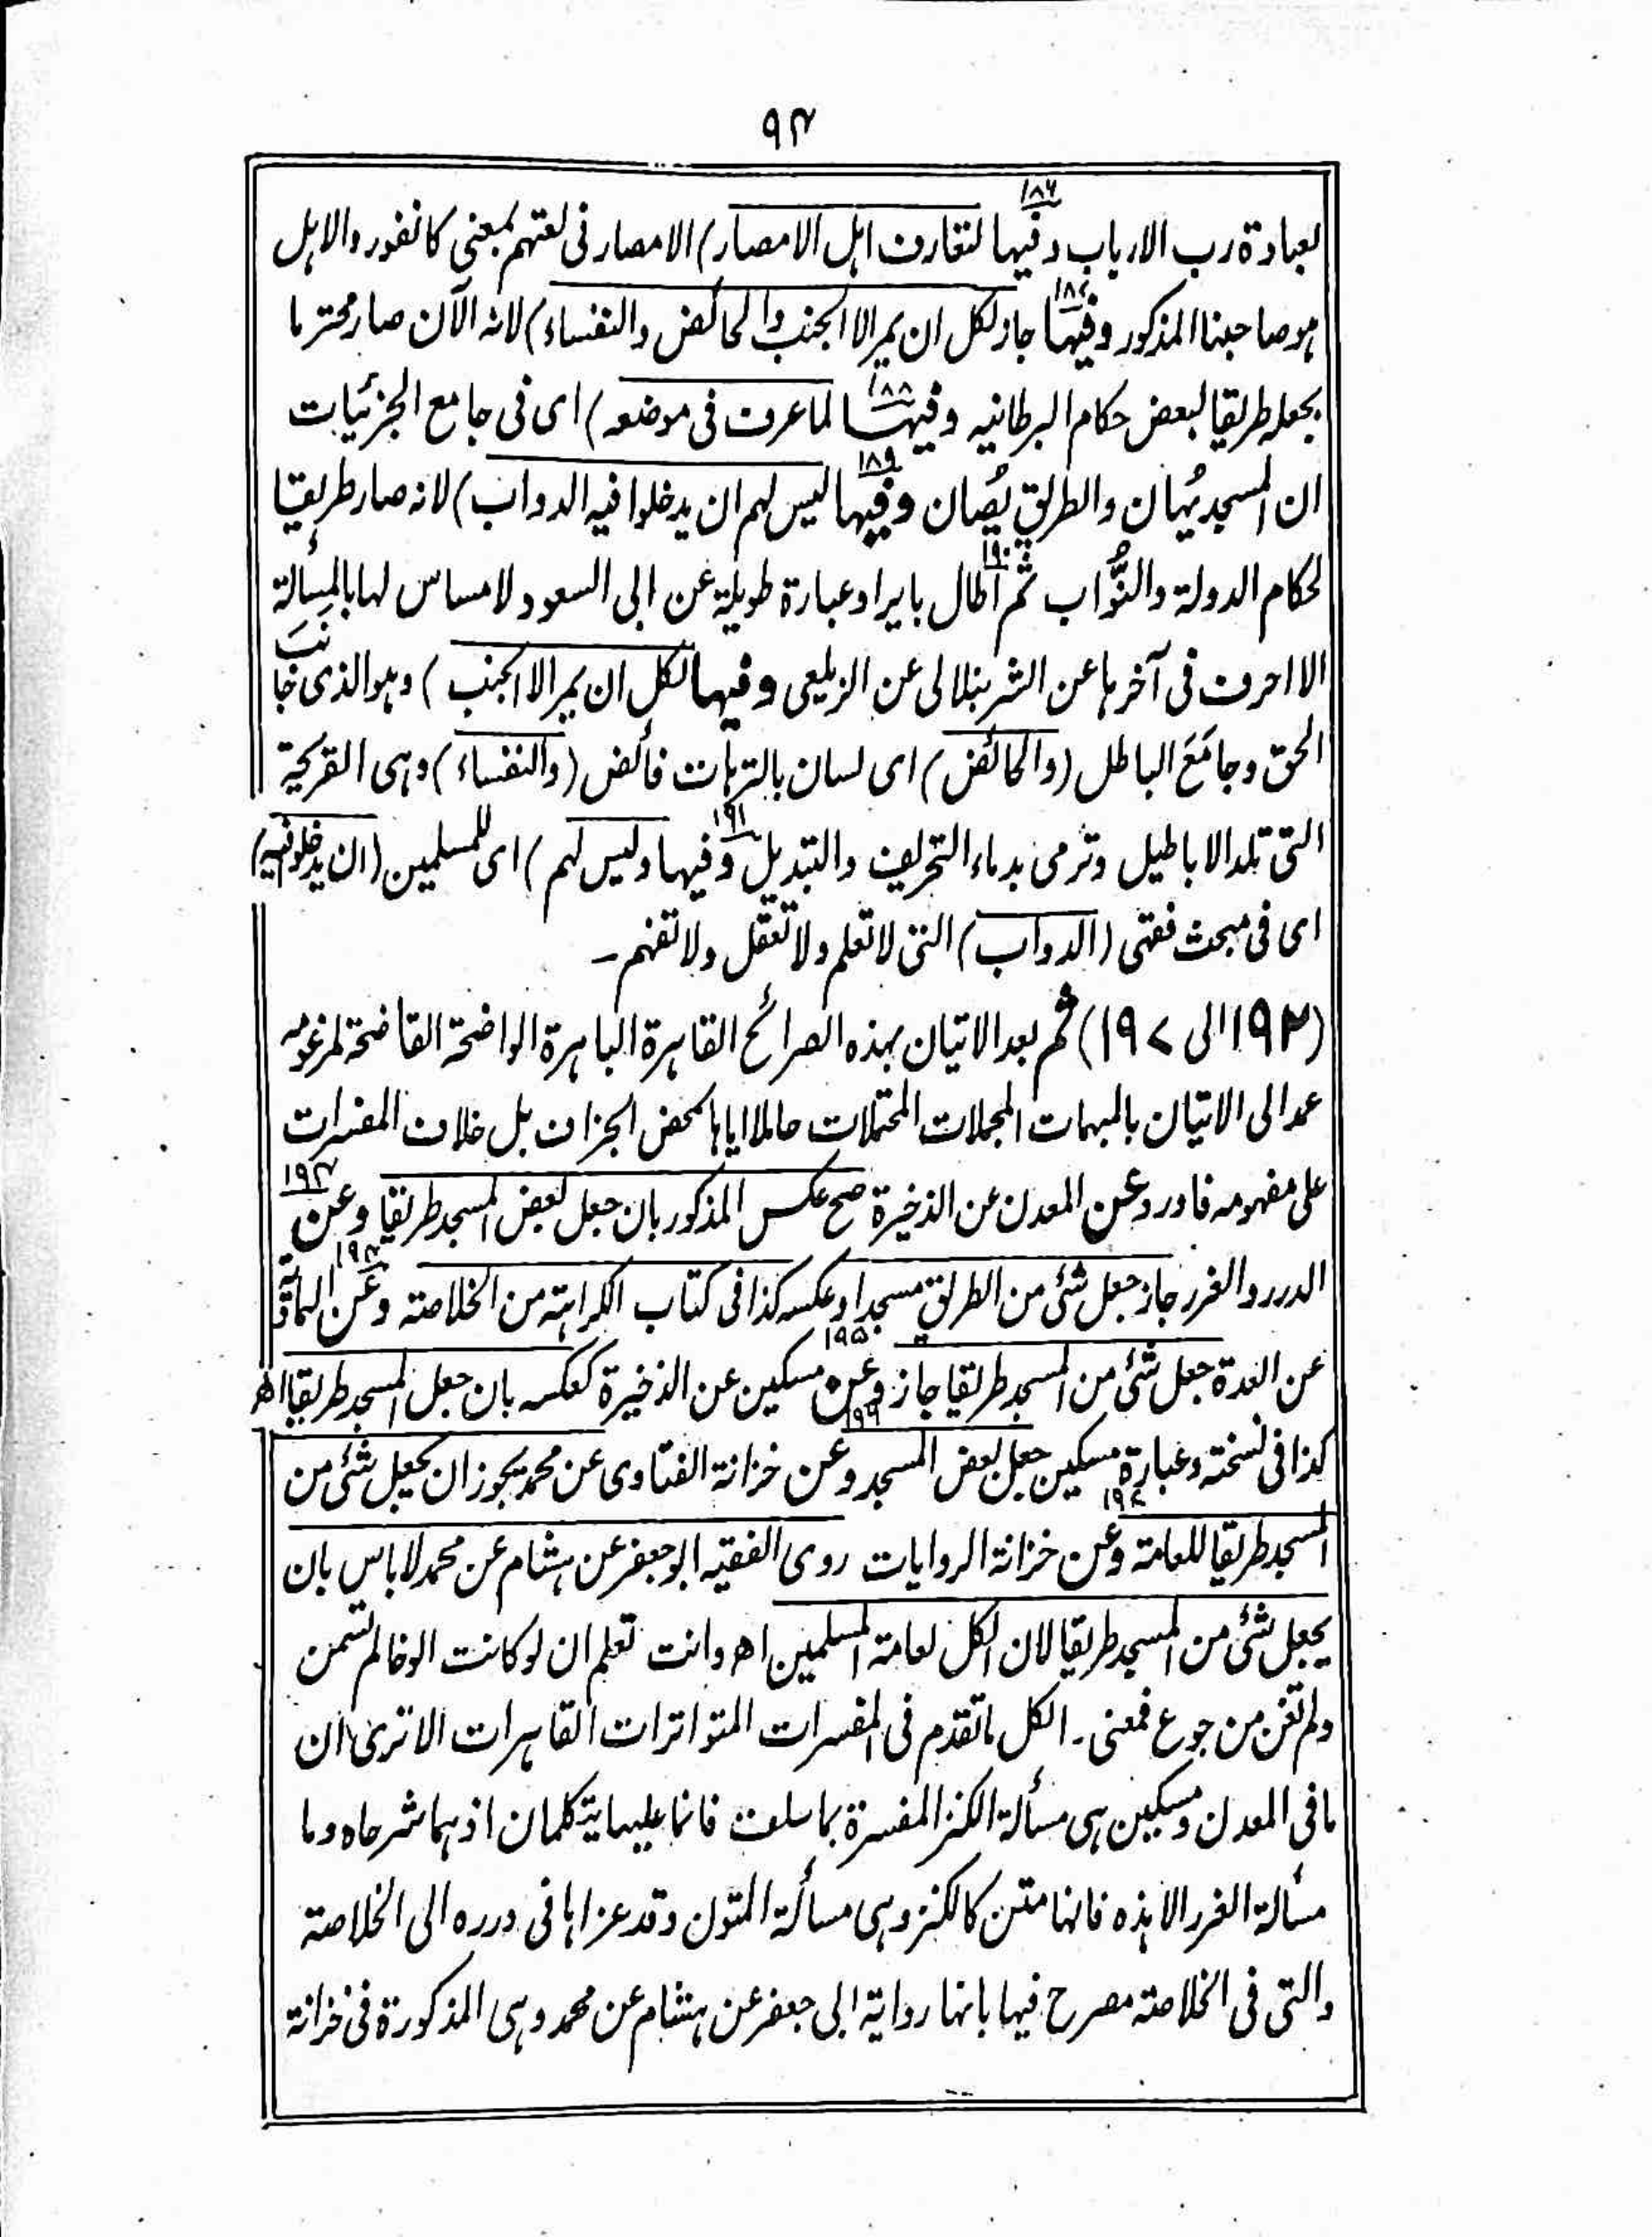 ۹۴
لعبادة رب الارباب وفيها ۱۸۶ لتعارف اهل الامصار) الامصار فى لغتهم بمعنى كانفور والاهل
هو صاحبنا المذكور وفيها ۱۸۷ جاز لكل ان يمر الا الجنب والحائض والنفساء) لانه الآن صار محترما
بجعله طريقا لبعض حكام البرطانيه وفيها ۱۸۸ لما عرف فى موضعه) اى فى جامع الجزئيات
ان المسجد يُهان والطريق يُصان وفيها ۱۸۹ ليس لهم ان يدخلوا فيه الدواب) لانه صار طريقا
لحكام الدولة والنُّوَّاب ثم ۱۹۰ اطال بايراد عبارة طويلة عن ابى السعود لامساس لها بالمسألة
الا احرف فى آخرها عن الشرنبلالى عن الزيلعى وفيها لكل ان يمر الا الجنب) وهو الذى جانَبَ
الحق وجامَعَ الباطل (والحائض) اى لسان بالترهات فائض (والنفساء) وهى القريحة
التى تلد الاباطيل وترمى بدماء التحريف والتبديل ۱۹۱ وفيها وليس لهم) اى للمسلمين (ان يدخلوا فيه)
اى فى مبحث فقهى (الدواب) التى لا تعلم ولا تعقل ولا تفهم ـ
(۱۹۲ الى ۱۹۷) ثم بعد الاتيان بهذه الصرائح القاهرة الباهرة الواضحة الفاضحة لمزعومه
عمد الى الاتيان بالمبهمات المجملات المحتملات حاملا اياها بمحض الجزاف بل خلاف المفسرات
على مفهومه فاورد عن المعدن عن الذخيرة صح عكس المذكور بان جعل بعض المسجد طريقا وعن ۱۹۳
الدرر والغرر جاز جعل شئ من الطريق مسجدا وعكسه كذا فى كتاب الكراهة من الخلاصة وعن ۱۹۴
عن العدة جعل شئ من المسجد طريقا جاز ۱۹۵ وعن مسكين عن الذخيرة كعكسه بان جعل المسجد طريقا اھ
كذا فى نسخته وعبارة مسكين جعل بعض المسجد ۱۹۶ وعن خزانة الفتاوى عن محمد يجوز ان يجعل شئ من
المسجد طريقا للعامة ۱۹۷ وعن خزانة الروايات روى الفقيه ابو جعفر عن هشام عن محمد لا باس بان
يجعل شئ من المسجد طريقا لان الكل لعامة المسلمين اھ وانت تعلم ان لو كانت الوفا لم تسمن
ولم تغن من جوع فمعنى ـ الكل ما تقدم فى المفسرات المتواترات القاهرات الا ترى ان
ما فى المعدن ومسكين هى مسألة الكنز المفسرة بما سلف فانما عليها يتكلمان اذ هما شرحاه وما
مسألة الغرر الا هذه فانها متن كالكنز وهى مسألة المتون وقد عزاها فى درره الى الخلاصة
والتى فى الخلاصة مصرح فيها بانها رواية ابى جعفر عن هشام عن محمد وهى المذكورة فى خزانة